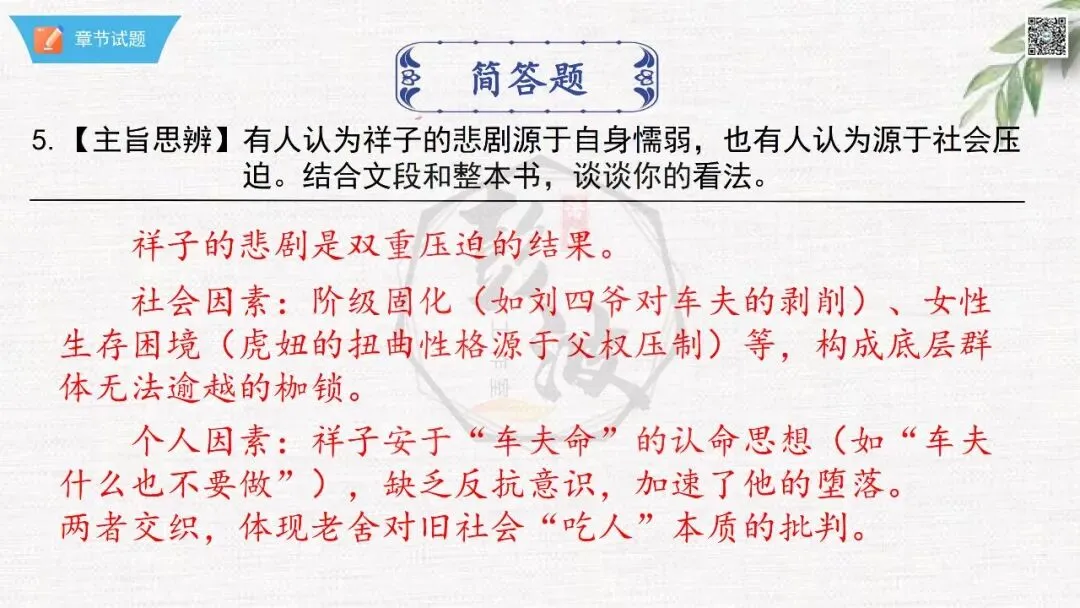 章节试题
简答题
5.【主旨思辨】有人认为祥子的悲剧源于自身懦弱，也有人认为源于社会压
迫。结合文段和整本书，谈谈你的看法。
祥子的悲剧是双重压迫的结果。
社会因素：阶级固化（如刘四爷对车夫的剥削）、女性
生存困境（虎妞的扭曲性格源于父权压制）等，构成底层群
体无法逾越的枷锁。
个人因素：祥子安于“车夫命”的认命思想（如“车夫
什么也不要做”），缺乏反抗意识，加速了他的堕落。
两者交织，体现老舍对旧社会“吃人”本质的批判。